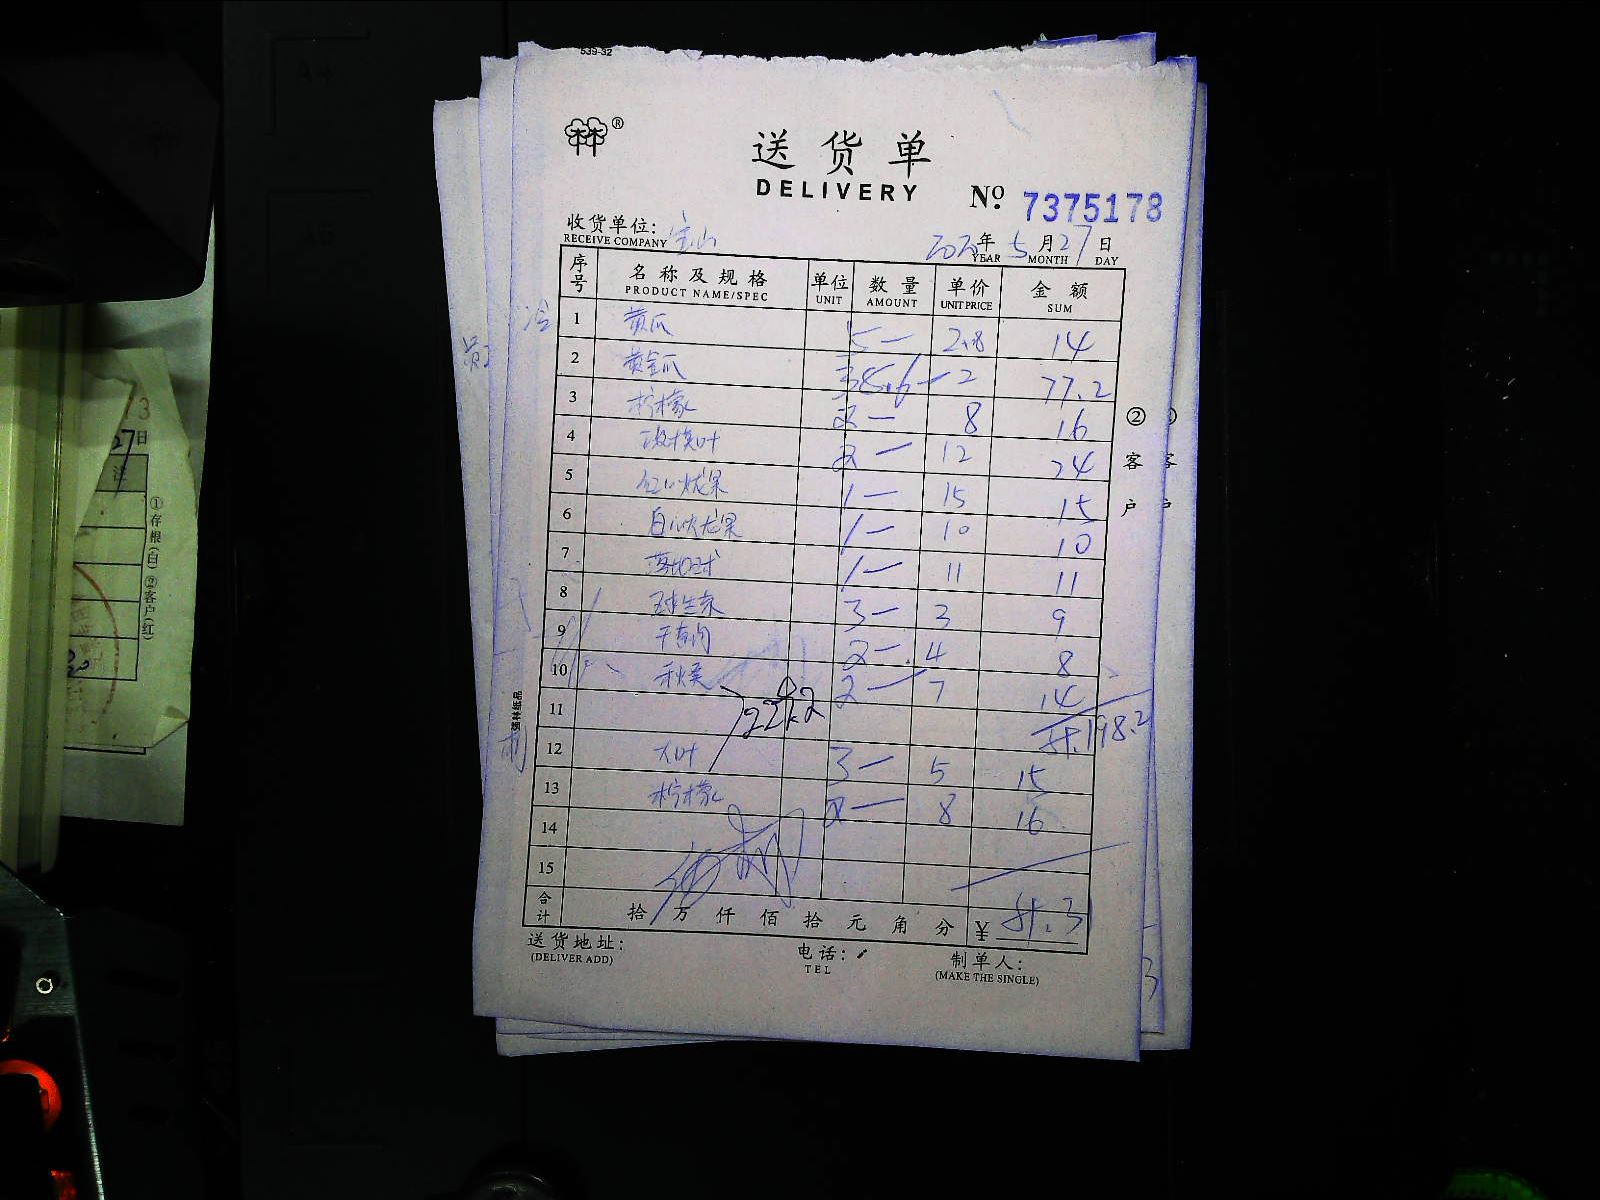 539-32
送货单
DELIVERY
№ 7375178
收货单位: 宝山
RECEIVE COMPANY
2020年 5月27日
YEAR MONTH DAY
序号 名称及规格 单位 数量 单价 金额
PRODUCT NAME/SPEC UNIT AMOUNT UNIT PRICE SUM
冷
1 黄瓜 5— 2.8 14
2 黄金瓜 38.6— 2 77.2
3 柠檬 2— 8 16
4 2— 12 24
5 红心火龙果 1— 15 15
6 白心火龙果 1— 10 10
7 1— 11 11
8 球生菜 3— 3 9
9 2— 4 8
10 秋葵 2— 7 14
11 198.2
12 大叶 3— 5 15
13 柠檬 2— 8 16
14
15
合计 拾万仟佰拾元角分 ¥
送货地址: 电话: 制单人:
(DELIVER ADD) TEL (MAKE THE SINGLE)
②客户
强林纸品
27日
注
①存根(白)②客户(红)